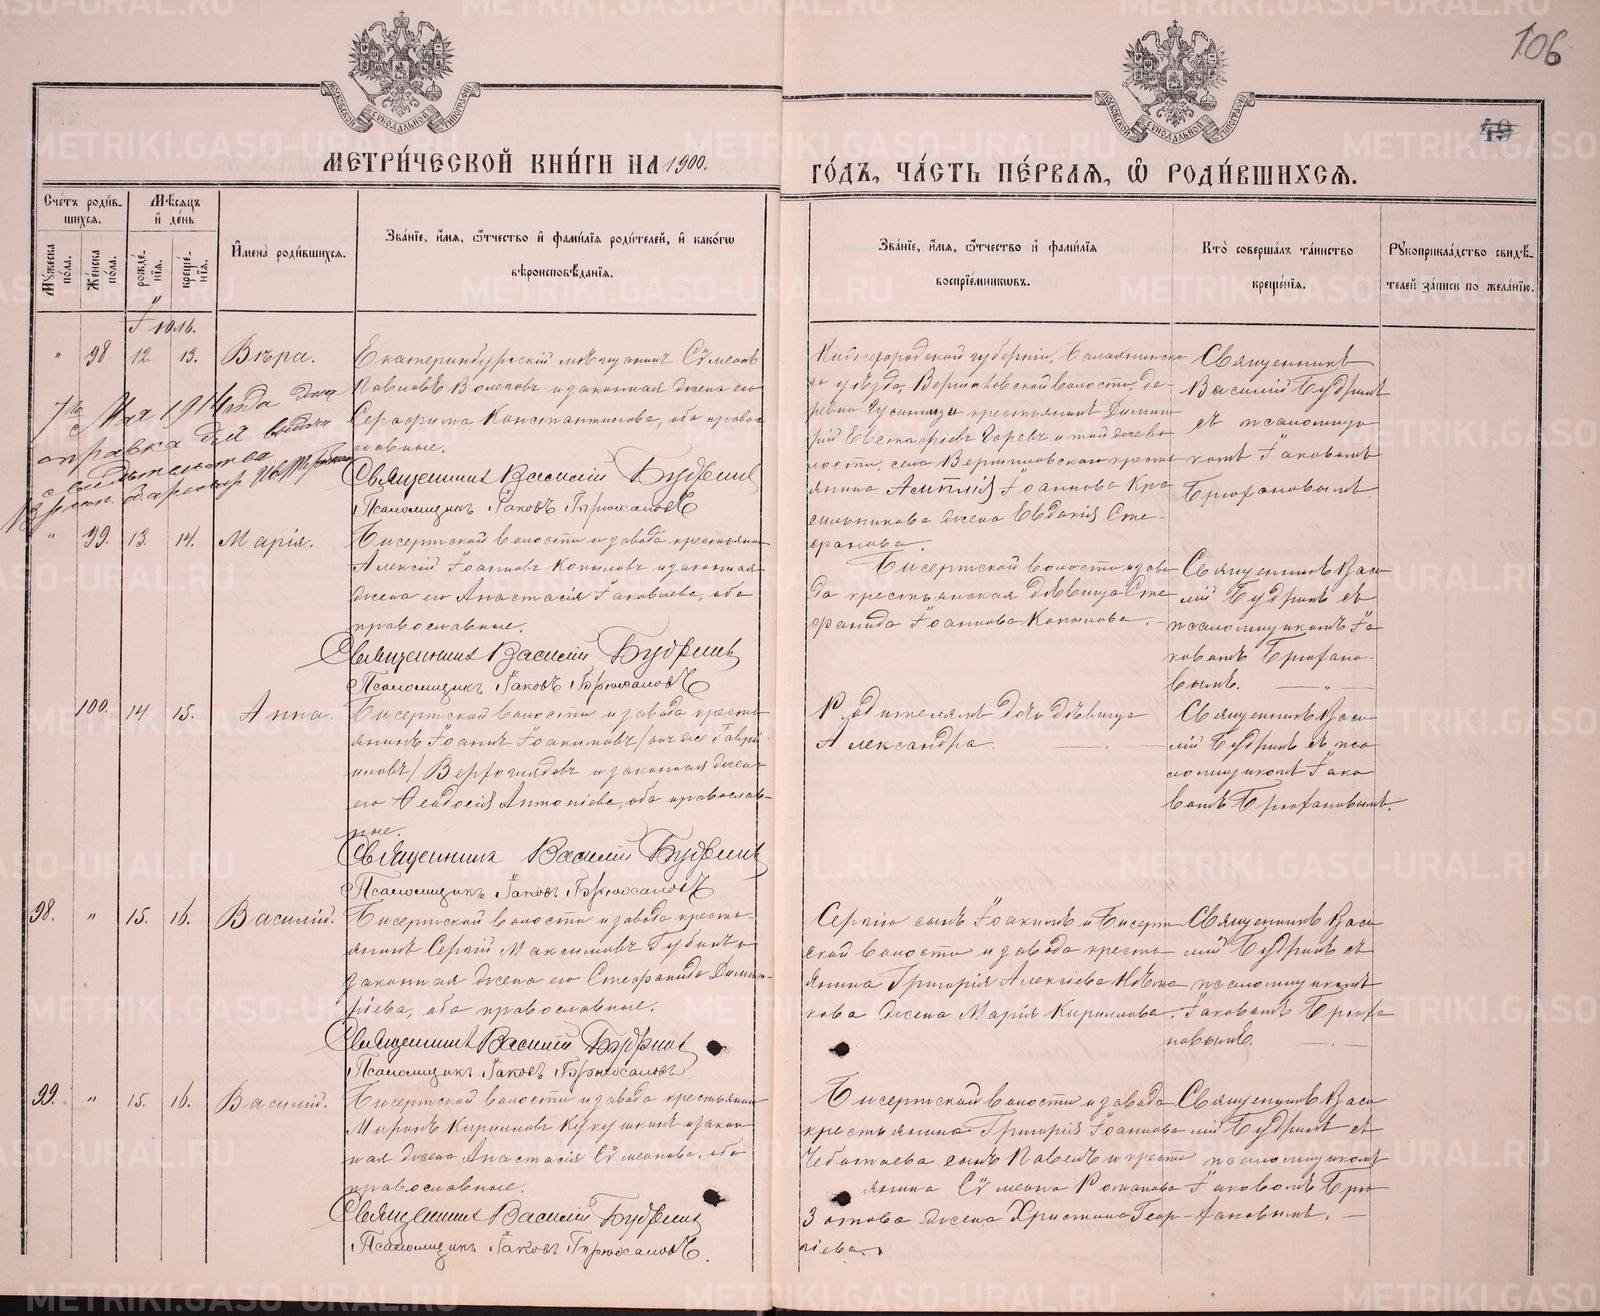 106
49
МЕТРИ́ЧЕСКОЙ КНИ́ГИ НА 1900.
ГО́ДЪ, ЧА́СТЬ ПЕ́РВАѦ, Ѡ҆ РОДИ́ВШИХСѦ.
Сче́тъ роди́в-
шихся.
Мѣ́сяцъ
и҆ де́нь
Мꙋ́жеска по́ла.
Же́нска по́ла.
рожде́-
нїя.
креще́-
нїя.
И҆мена̀ роди́вшихся.
Зва́нїе, и҆́мя, ѻ҆́тчество и҆ фами́лїя роди́телей, и҆ како́гѡ
вѣроисповѣ́данїя.
Зва́нїе, и҆́мя, ѻ҆́тчество и҆ фами́лїя
воспрїе́мникѡвъ.
Кто̀ соверша́лъ та́инство
креще́нїя.
Рꙋкоприкла́дство свидѣ́-
телей за́писи по жела́нїю.
" 98 12. 13. Вѣра.
Екатеринбургскій мѣщанинъ Сѵмеонъ
Павловъ Волеговъ и законная жена его
Серафима Константинова, оба право-
славные.
Священникъ Василій Будринъ
Псаломщикъ Іаковъ Брюхановъ
7го Мая 1914 года дана
справка для выдачи
свидѣтельства
Нижегородской губерніи, Балахнинска-
го уѣзда, Вершиловской волости, де-
ревни Гусиницы крестьянинъ Димит-
рій Евстафіевъ Горевъ и той же во-
лости, села Вершиловскаго кресть-
янина Амплія Іоаннова Кра-
сильникова жена Евдокія Сте-
фанова.
Священникъ
Василій Будринъ
съ псаломщи-
комъ Іаковомъ
Брюхановымъ.
" 99. 13. 14. Марія.
Бисертской волости и завода крестьянинъ
Алексій Іоанновъ Копыловъ и законная
жена его Анастасія Іаковлева, оба
православные.
Священникъ Василій Будринъ
Псаломщикъ Іаковъ Брюхановъ
Бисертской волости и заво-
да крестьянская дѣвица Сте-
фанида Іоаннова Копылова.
Священникъ Васи-
лій Будринъ съ
псаломщикомъ Іа-
ковомъ Брюхано-
вымъ.
100. 14 15. Анна.
Бисертской волости и завода кресть-
янинъ Іоаннъ Іоакимовъ /онъ же Гаврі-
иловъ/ Верхоглядовъ и законная жена
его Ѳеодосія Антоніева, оба православ-
ные.
Священникъ Василій Будринъ
Псаломщикъ Іаковъ Брюхановъ
Родителямъ дочь дѣвица
Александра.
Священникъ Васи-
лій Будринъ съ пса-
ломщикомъ Іако-
вомъ Брюхановымъ.
98. " 15. 16. Василій.
Бисертской волости и завода кресть-
янинъ Сергій Максимовъ Губинъ и
законная жена его Стефанида Димит-
ріева, оба православные.
Священникъ Василій Будринъ
Псаломщикъ Іаковъ Брюхановъ.
Сергію сынъ Іоакимъ и Бисерт-
ской волости и завода кресть-
янина Григорія Алексіева
жена Марія Кириллова.
Священникъ Васи-
лій Будринъ съ
псаломщикомъ
Іаковомъ Брюха-
новымъ.
99. " 15. 16. Василій.
Бисертской волости и завода крестьянинъ
Миронъ Кирилловъ Кукушкинъ и закон-
ная жена Анастасія Сѵмеонова, оба
православные.
Священникъ Василій Будринъ
Псаломщикъ Іаковъ Брюхановъ.
Бисертской волости и завода
крестьянина Григорія Іоаннова
Чеботаева сынъ Павелъ и кресть-
янина Сѵмеона Романова
Зотова жена Христина Геор-
гіева.
Священникъ Васи-
лій Будринъ съ
псаломщикомъ
Іаковомъ Брю-
хановымъ.